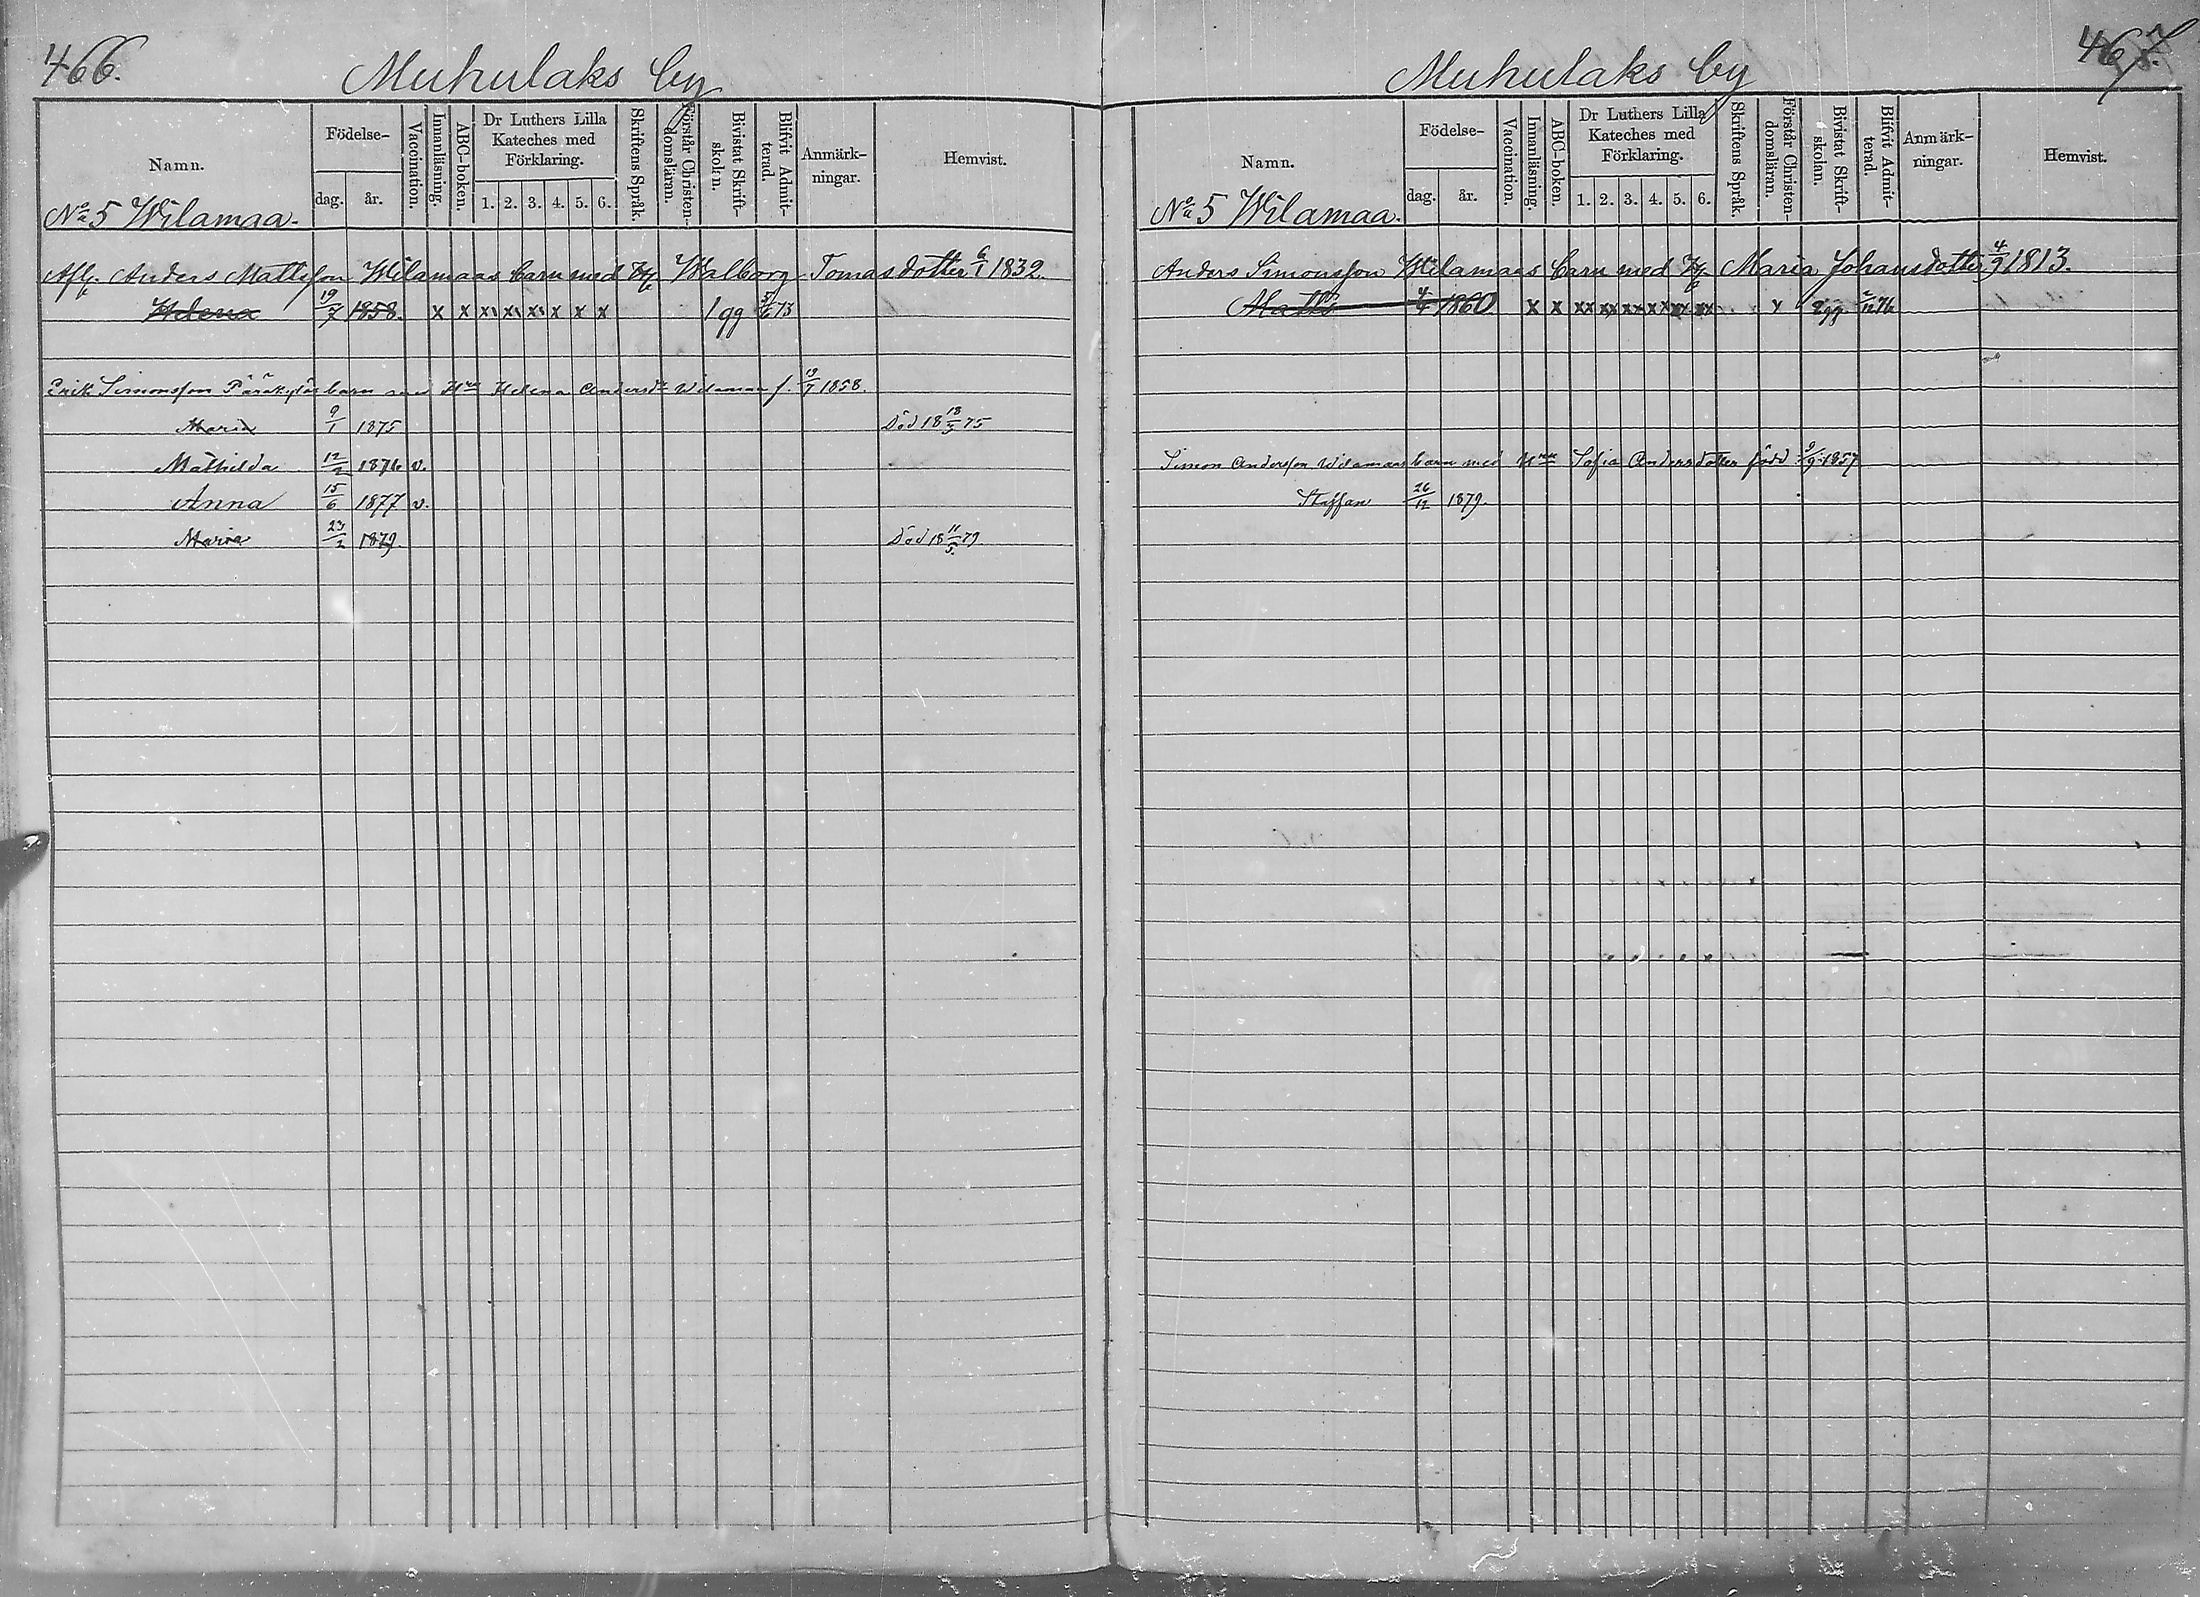 466.
Muhulaks by
Namn.
Födelse-
dag. år.
Vaccination.
Innanläsning.
ABC-boken.
Dr Luthers Lilla
Kateches med
Förklaring.
1. 2. 3. 4. 5. 6.
Skriftens Språk.
Förstår Christen-
domsläran.
Bivistat Skrift-
skolan.
Blifvit Admit-
terad.
Anmärk-
ningar.
Hemvist.
No 5 Wilamaa.
Afl. Anders Mattsson Wilamaas barn med Walborg Tomasdotter 6/1 1832.
Helena 19/7 1858. x x x x x x x x 1 gg 5/6 73
Erik Simonsson barn med Helena Andersdr Wilamaa f. 19/7 1858.
Maria 9/1 1875 Död 18 18/5 75
Mathilda 12/2 1876 v.
Anna 15/6 1877 v.
Maria 23/2 1879. Död 18 11/5 79
467.
Muhulaks by
Namn.
Födelse-
dag. år.
Vaccination.
Innanläsning.
ABC-boken.
Dr Luthers Lilla
Kateches med
Förklaring.
1. 2. 3. 4. 5. 6.
Skriftens Språk.
Förstår Christen-
domsläran.
Bivistat Skrift-
skolan.
Blifvit Admit-
terad.
Anmärk-
ningar.
Hemvist.
No 5 Wilamaa.
Anders Simonsson Wilamaas barn med Maria Johansdotter 4/9 1813.
Matts 1860 x x xx xx xx xx xx xx x 2 gg.
Simon Andersson Wilamaas barn med Sofia Andersdotter född 1857
Staffan 26/12 1879.